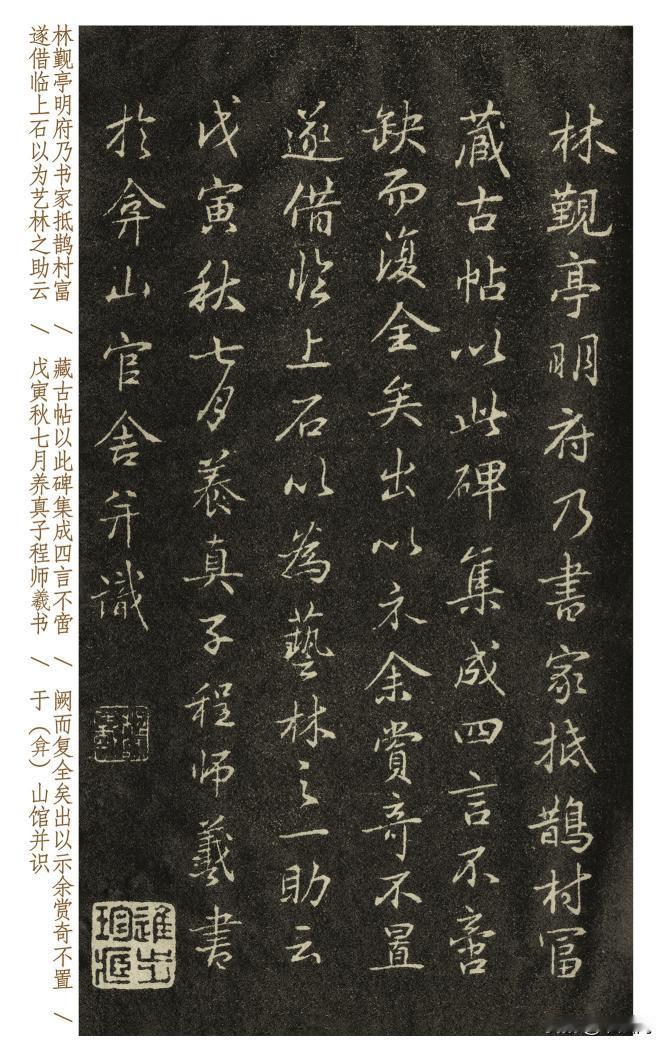 林覲亭明府乃書家抵鵲村冨
蔵古帖以此碑集成四言不啻
缺而復全矣出以示余賞奇不置
遂借临上石以為藝林之一助云
戊寅秋七月養真子程师羲書
於弇山官舍并識
林觐亭明府乃书家抵鹊村富 / 藏古帖以此碑集成四言不啻 / 阙而复全矣出以示余赏奇不置 /
遂借临上石以为艺林之助云 / 戊寅秋七月养真子程师羲书 / 于（弇）山馆并识